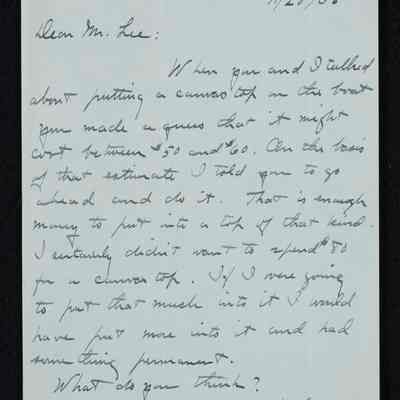 Dear Mr. Lee:
When you and I talked
about putting a canvas top on the boat
you made a guess that it might
cost between $50 and $60. On the basis
of that estimate I told you to go
ahead and do it. That is enough
money to put into a top of that kind.
I certainly didn't want to spend $80
for a canvas top. If I were going
to put that much into it I would
have put more into it and had
something permanent.
What do you think?